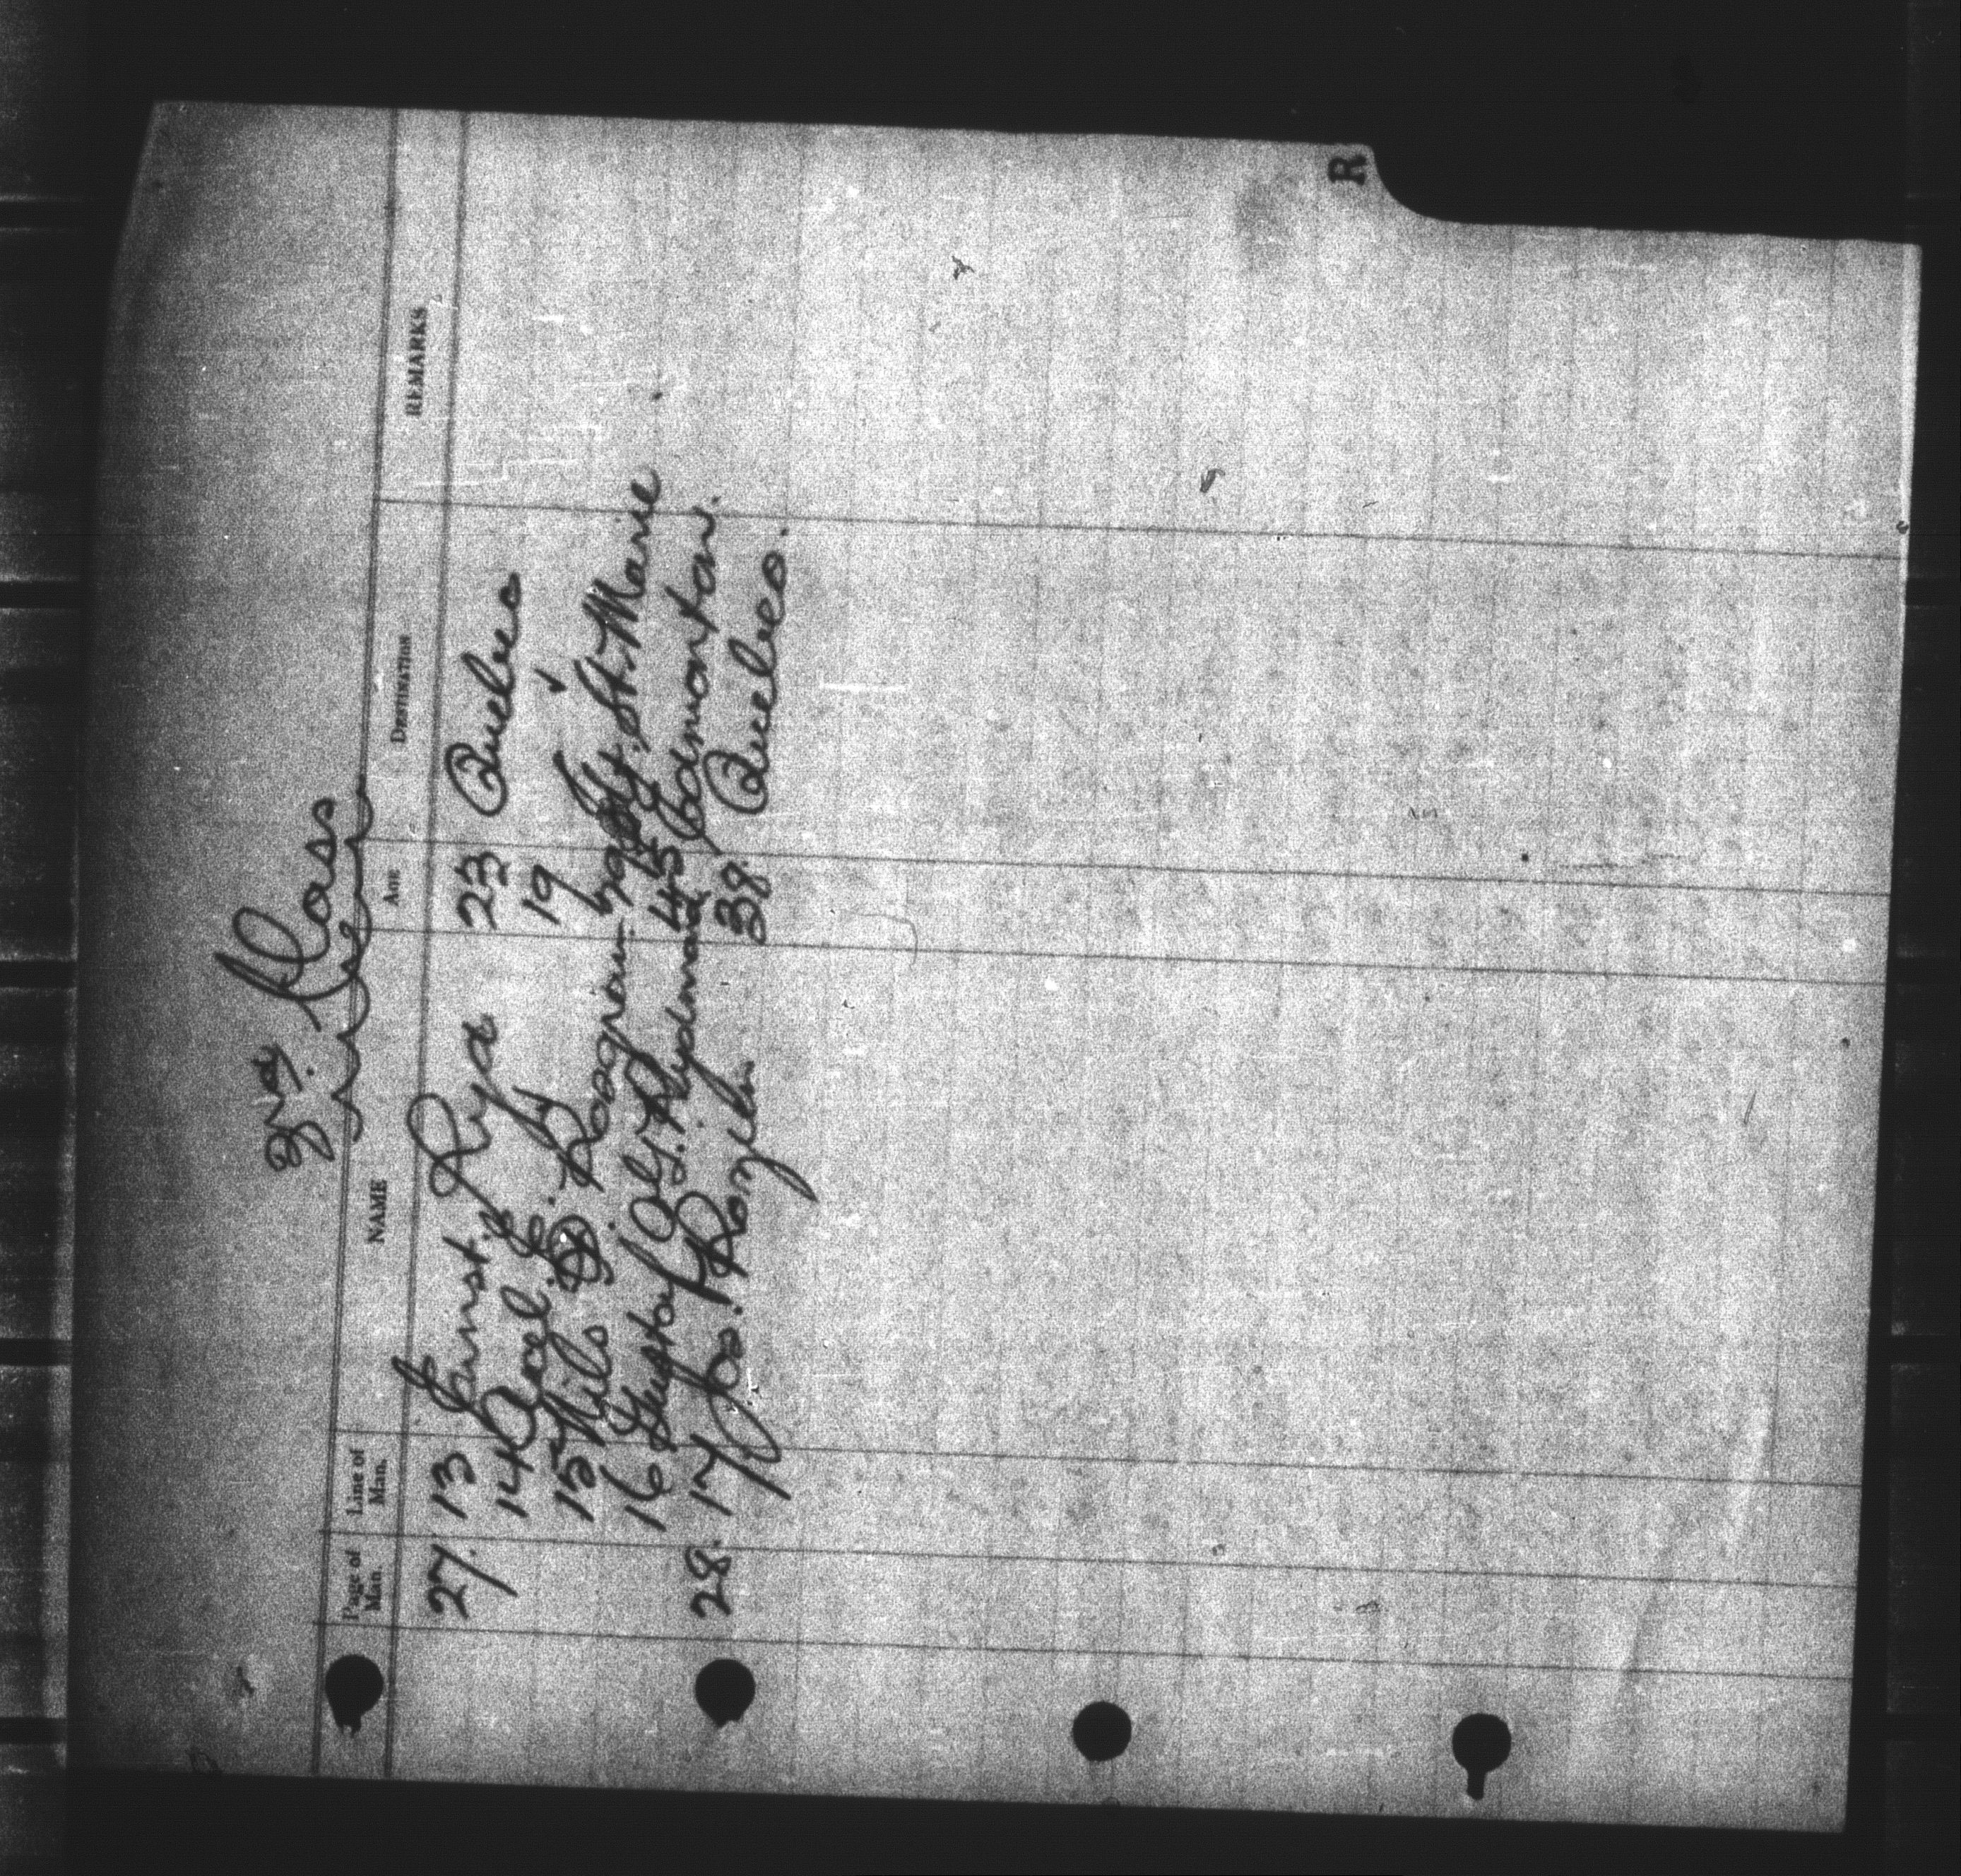 R
3rd. Class
Page of Man. Line of Man. NAME AGE DESTINATION REMARKS
27. 13 Ernst. Rya 23 Quebec
14 Axel. E. " 19 "
15 Nils Sault. St. Marie.
16 Gustaf 45 Edmonton.
28. 17 Jos. 38. Quebec.